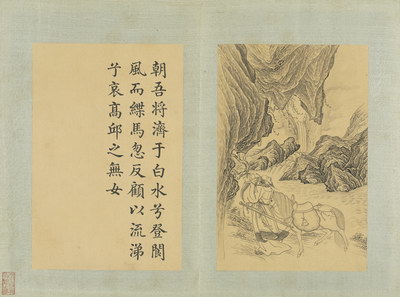 朝吾将濟于白水兮登閬
風而緤馬忽反顧以流涕
兮哀髙邱之無女